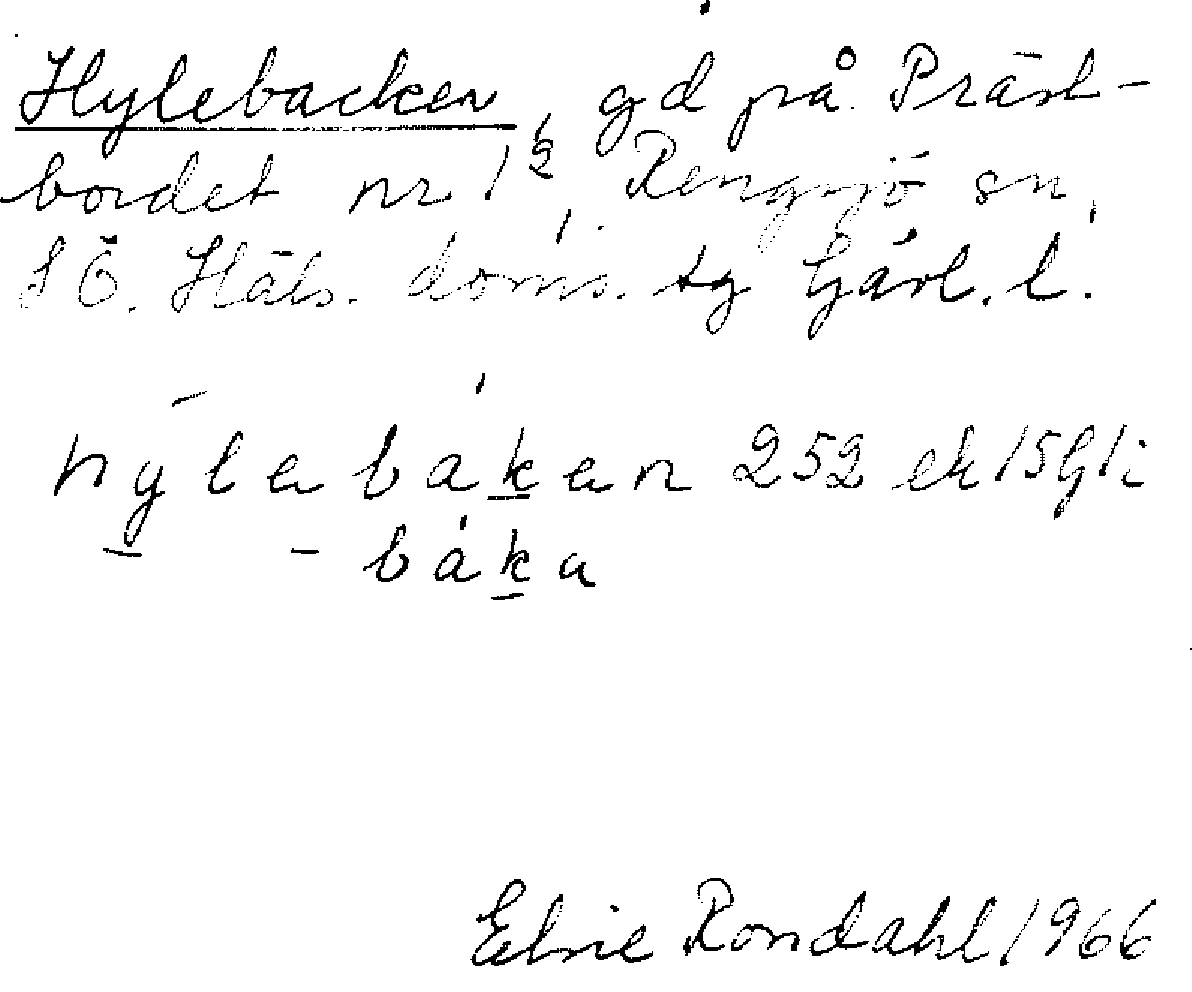 Hylebacken, gd på Präst-
bordet nr 1 2, Rengsjö sn,
SÖ. Häls. doms. tg Gävl. l.
hylebákan 252 ek
- báka
Elsie Rondahl 1966